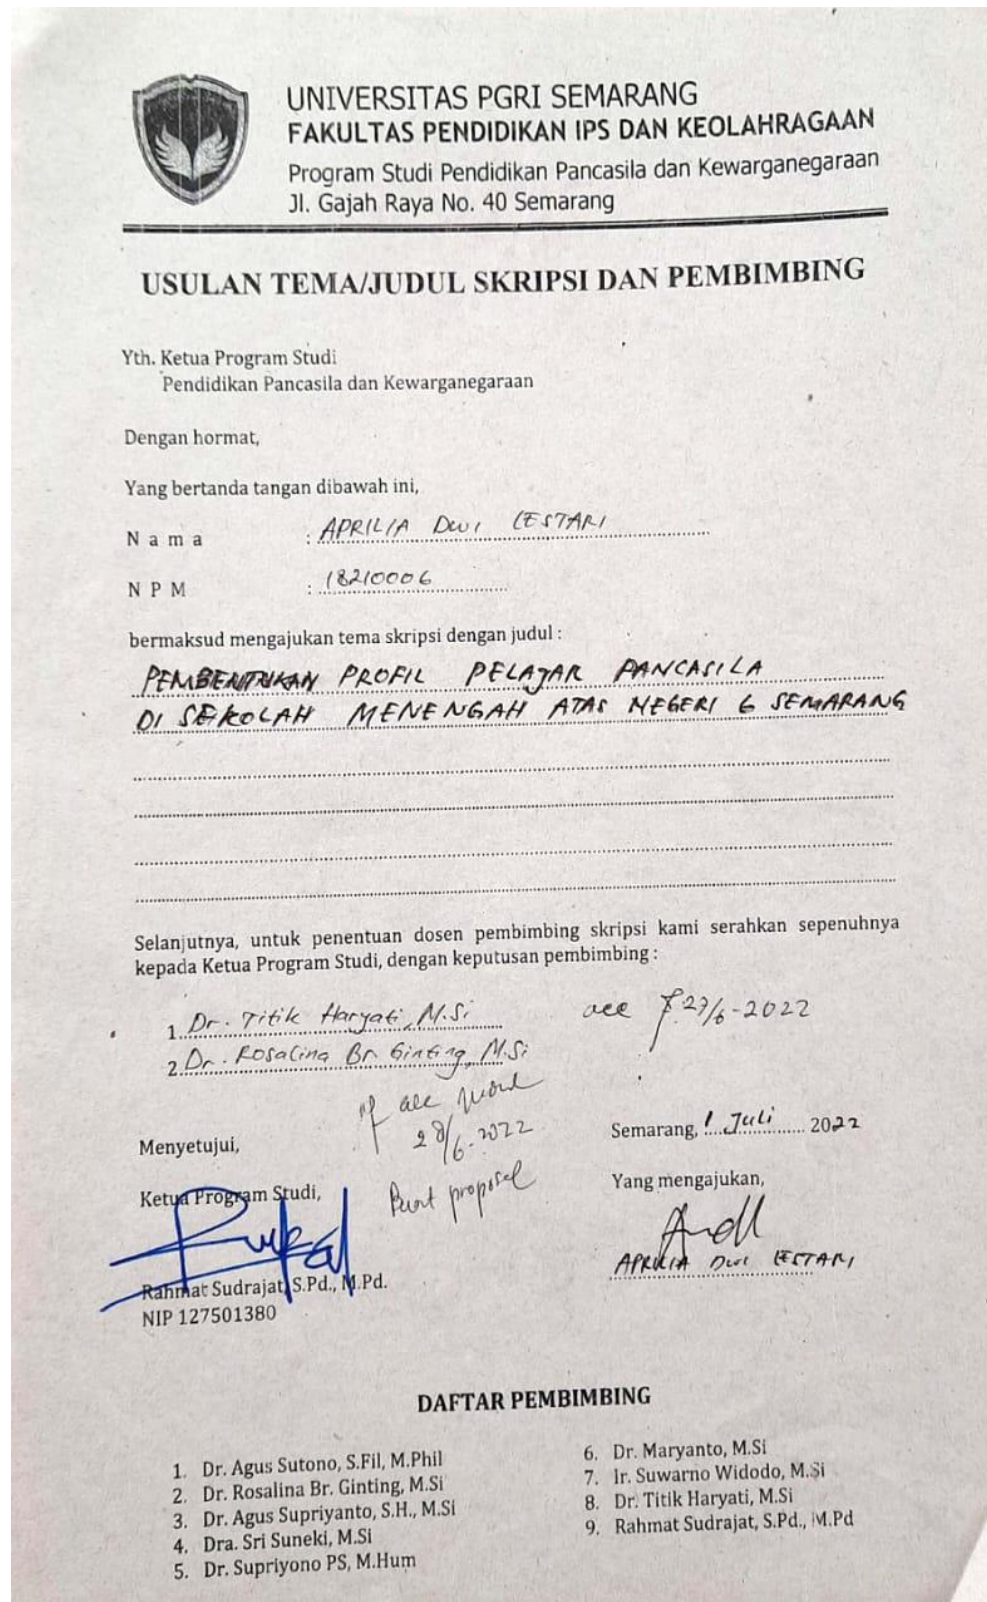 UNIVERSITAS PGRI SEMARANG
FAKULTAS PENDIDIKAN IPS DAN KEOLAHRAGAAN
Program Studi Pendidikan Pancasila dan Kewarganegaraan
Jl. Gajah Raya No. 40 Semarang
USULAN TEMA/JUDUL SKRIPSI DAN PEMBIMBING
Yth. Ketua Program Studi
Pendidikan Pancasila dan Kewarganegaraan
Dengan hormat,
Yang bertanda tangan dibawah ini,
N a m a : APRILIA DWI LESTARI
N P M : 18210006
bermaksud mengajukan tema skripsi dengan judul :
PEMBENTUKAN PROFIL PELAJAR PANCASILA
DI SEKOLAH MENENGAH ATAS NEGERI 6 SEMARANG
Selanjutnya, untuk penentuan dosen pembimbing skripsi kami serahkan sepenuhnya
kepada Ketua Program Studi, dengan keputusan pembimbing :
1. Dr. Titik Haryati, M.Si
acc 27/6-2022
2. Dr. Rosalina Br. Ginting, M.Si
acc judul
28/6-2022
Buat proposal
Menyetujui,
Ketua Program Studi,
Rahmat Sudrajat, S.Pd., M.Pd.
NIP 127501380
Semarang, 1 Juli 2022
Yang mengajukan,
APRILIA DWI LESTARI
DAFTAR PEMBIMBING
1. Dr. Agus Sutono, S.Fil, M.Phil
2. Dr. Rosalina Br. Ginting, M.Si
3. Dr. Agus Supriyanto, S.H., M.Si
4. Dra. Sri Suneki, M.Si
5. Dr. Supriyono PS, M.Hum
6. Dr. Maryanto, M.Si
7. Ir. Suwarno Widodo, M.Si
8. Dr. Titik Haryati, M.Si
9. Rahmat Sudrajat, S.Pd., M.Pd